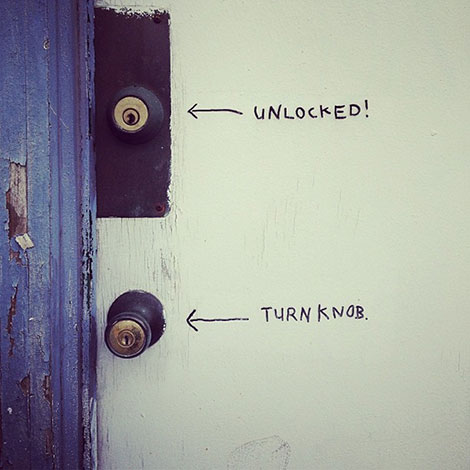 UNLOCKED!
TURN KNOB.